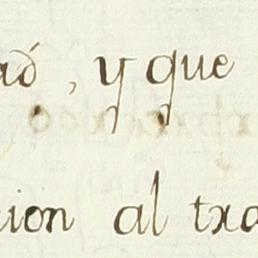 ad, y que
cion al tra